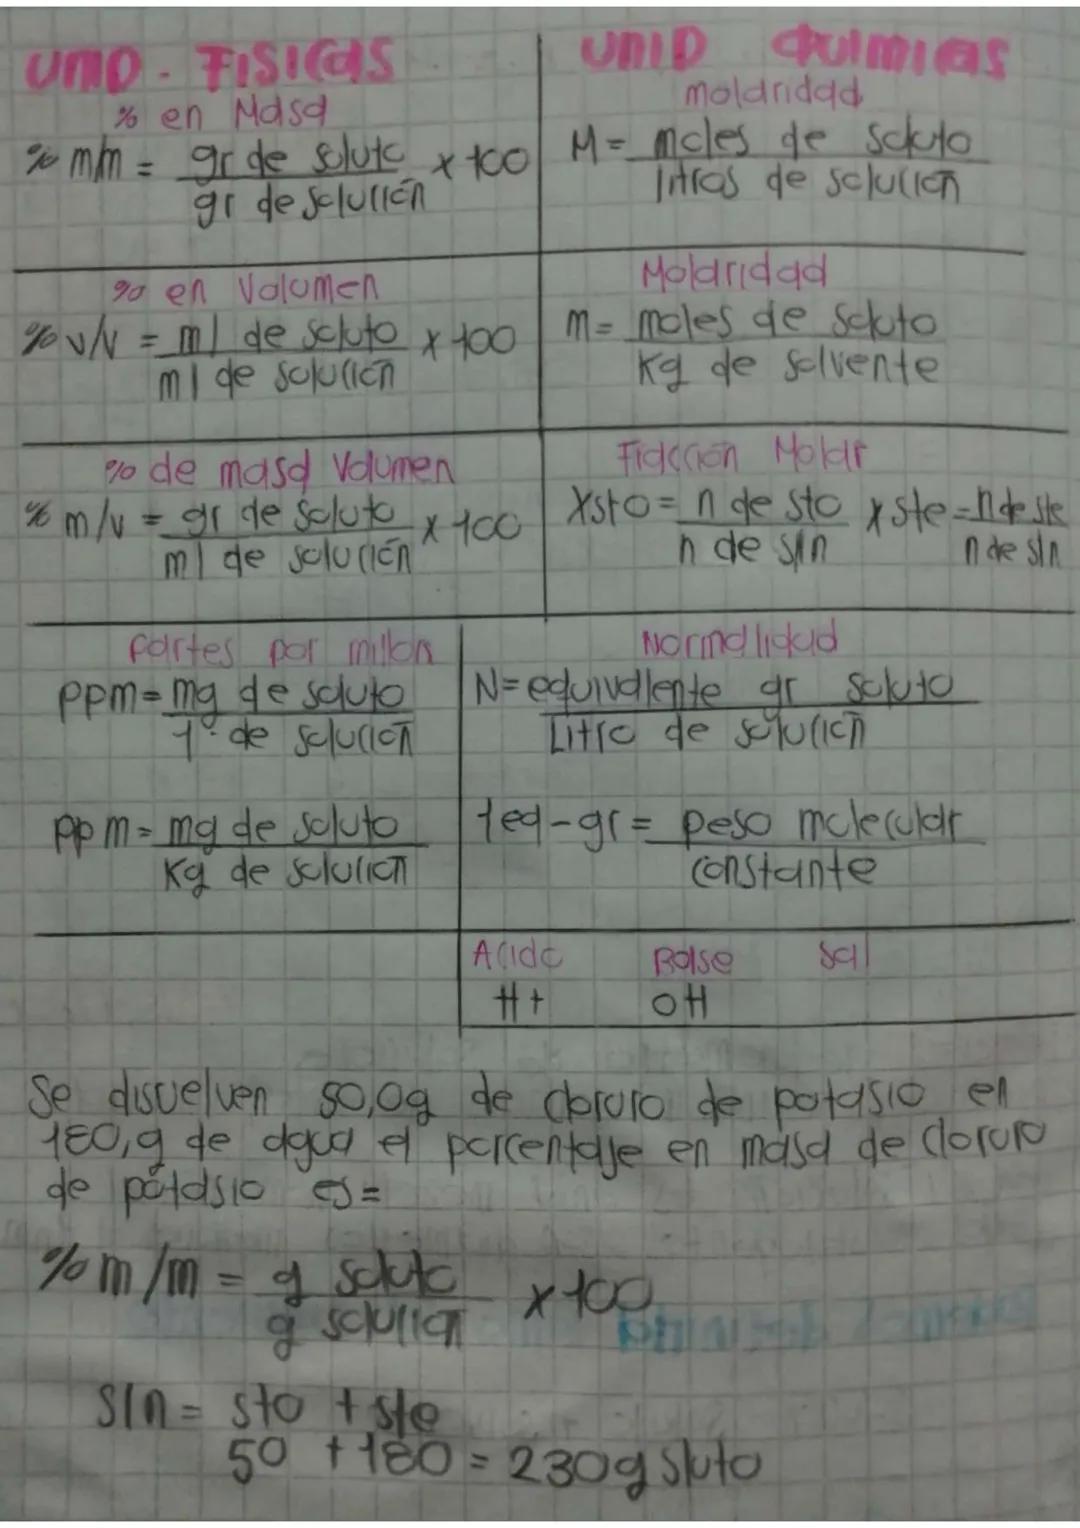 UNID. FISICAS
% en Masa
% m/m = gr de soluto x 100
gr de solución
% en Volumen
% v/v = ml de soluto x 100
ml de solución
% de masa Volumen
% m/v = gr de soluto x 100
ml de solución
UNID QUIMICAS
molaridad
M = moles de soluto
litros de solución
Molaridad
m = moles de soluto
Kg de solvente
Fracción Molar
Xsto = n de sto x ste = n de ste
n de sln n de sln
Partes por millon
ppm = mg de soluto
1° de solución
ppm = mg de soluto
Kg de solución
Normalidad
N = equivalente gr soluto
Litro de solución
1eq-gr = peso molecular
constante
Acido Base Sal
H+ OH
Se disuelven 50,0g de cloruro de potasio en
180,g de agua el porcentaje en masa de cloruro
de potasio es=
% m/m = g soluto x 100
g solución
sln = sto + ste
50 + 180 = 230g sluto